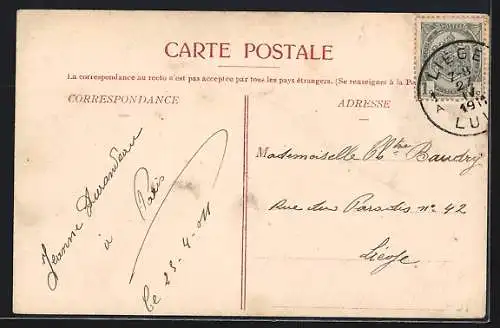 CARTE POSTALE
La correspondance au recto n'est pas acceptée par tous les pays étrangers. (Se renseigner à la
CORRESPONDANCE
ADRESSE
LIEGE
LU
1
Jeanne
à
Ce 25-4-011
Mademoiselle Baudry
Rue du Paradis n° 42
Liége